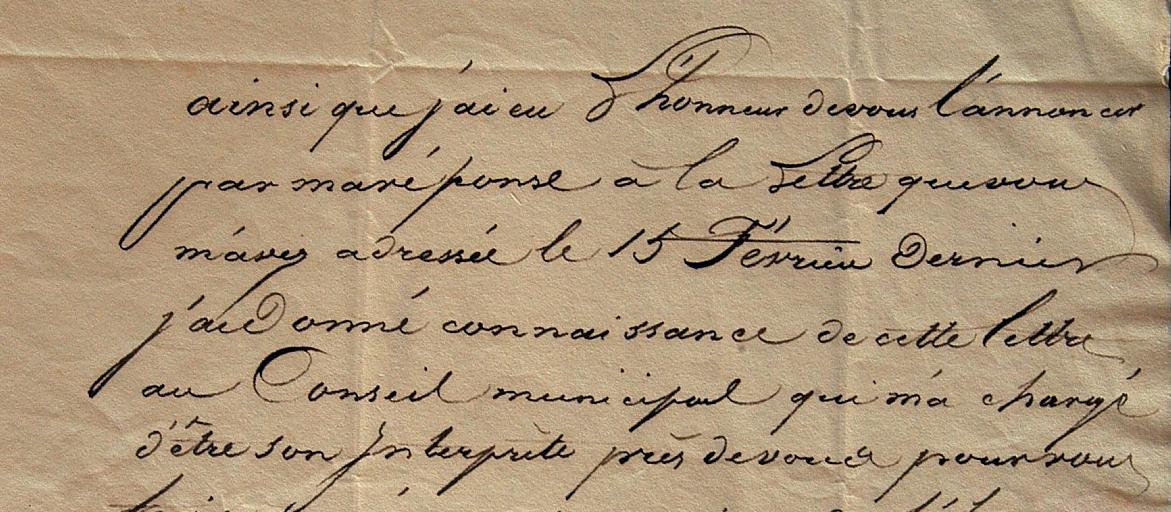 ainsi que j'ai eu L'honneur de vous l'annoncer
par ma réponse à la Lettre que vous
m'avez adressée le 15 Février Dernier
j'ai Donné connaissance de cette lettre
au Conseil municipal qui m'a chargé
d'être son Interprète près de vous pour vous